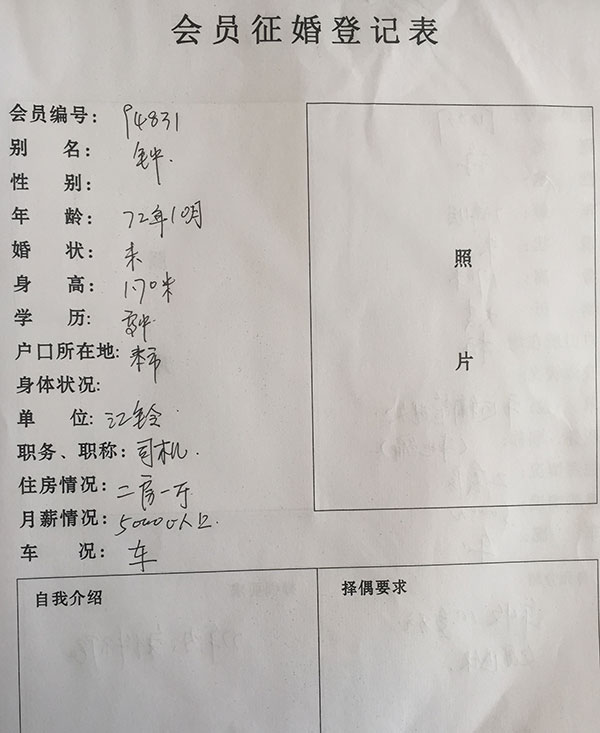 会员征婚登记表
会员编号: 94831
别 名:
性 别:
年 龄: 72年10月
婚 状: 未
身 高: 1.70米
学 历: 高中
户口所在地: 本市
身体状况:
单 位: 江铃
职务、职称: 司机.
住房情况: 二房一厅
月薪情况: 5000以上.
车 况: 车
照
片
自我介绍
择偶要求